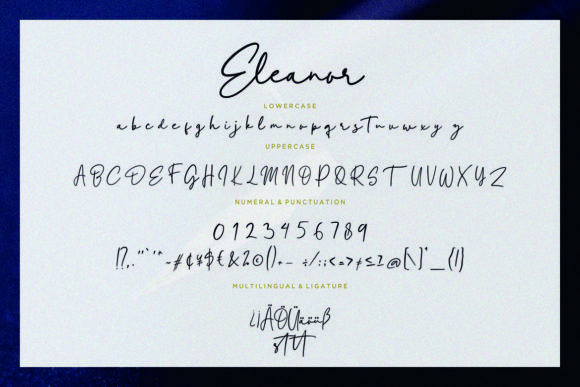 Eleanor
LOWERCASE
a b c d e f g h i j k l m n o p q r s t u v w x y z
UPPERCASE
A B C D E F G H I K L M N O P Q R S T U V W X Y Z
NUMERAL & PUNCTUATION
0 1 2 3 4 5 6 7 8 9
MULTILINGUAL & LIGATURE
ÄÖÜäöüß